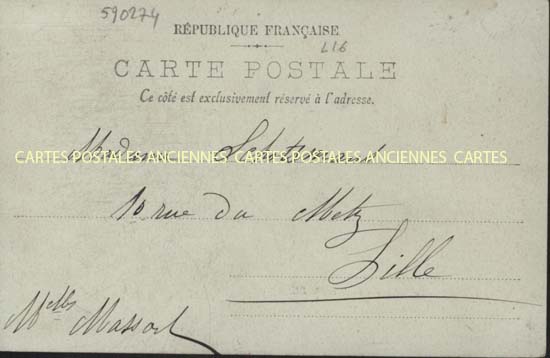 590274
RÉPUBLIQUE FRANÇAISE
L16
CARTE POSTALE
Ce côté est exclusivement réservé à l'adresse.
Madame
CARTES POSTALES ANCIENNES CARTES POSTALES ANCIENNES CARTES
rue du Metz
Lille
Melles